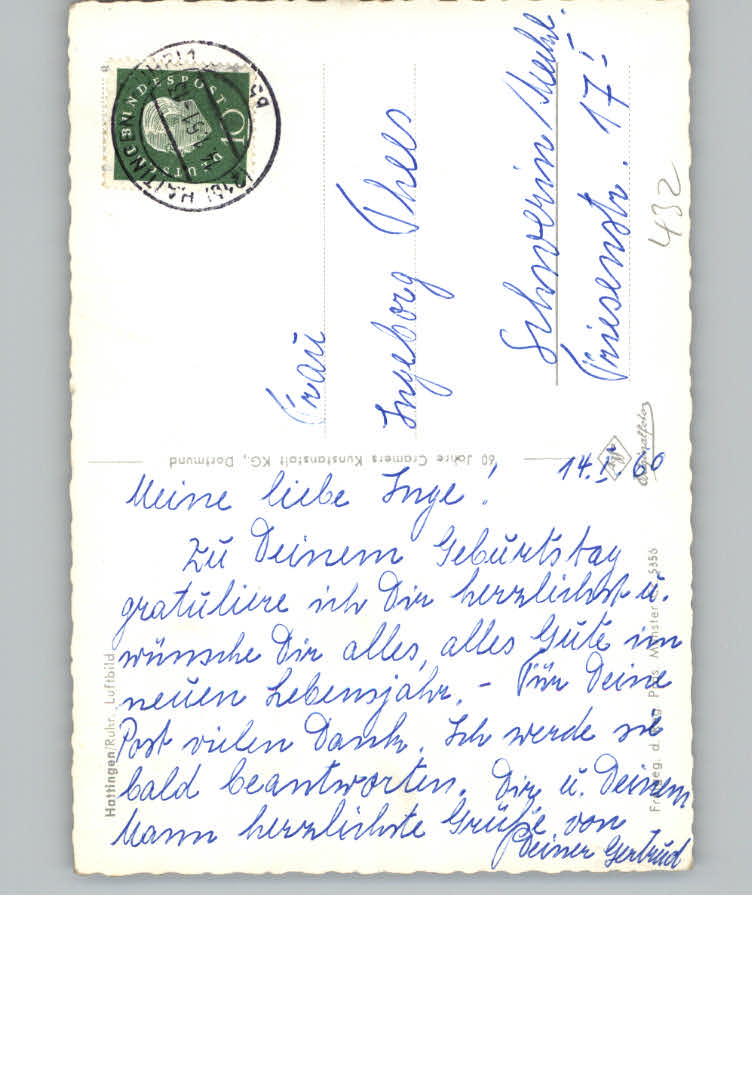 14.I.60
Meine liebe Inge!
Zu Deinem Geburtstag
gratuliere ich Dir herzlichst u.
wünsche Dir alles, alles Gute im
neuen Lebensjahr. - Für Deine
Post vielen Dank. Ich werde sie
bald beantworten. Dir u. Deinem
Mann herzlichste Grüße von
Deiner Gertrud
Frau
Ingeborg Thees
Schwerin/Meckl.
Friesenstr. 17 I
432
60 Jahre Cramers Kunstanstalt KG., Dortmund
Hattingen/Ruhr. Luftbild
Freigeg. d. Reg. Präs. Münster 5356
Originalfoto
DEUTSCHE BUNDESPOST
10
HATTINGEN